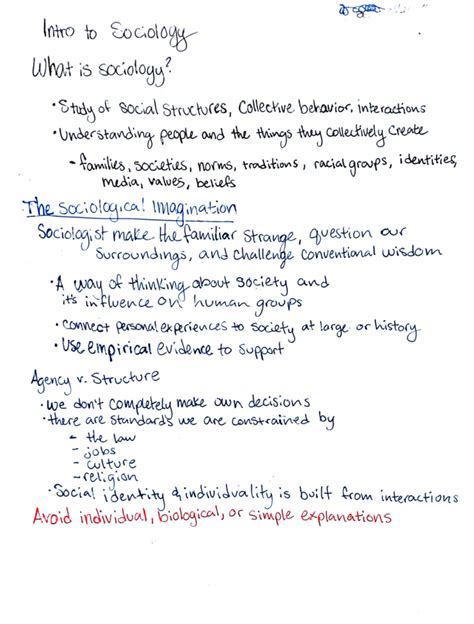 Intro to Sociology
What is sociology?
• Study of Social Structures, Collective behavior, interactions
• Understanding people and the things they collectively create
- families, societies, norms, traditions, racial groups, identities,
media, values, beliefs
The Sociological Imagination
Sociologist make the familiar strange, question our
surroundings, and challenge conventional wisdom
• A way of thinking about society and
it's influence on human groups
• Connect personal experiences to society at large or history
• Use empirical evidence to support
Agency v. Structure
• we don't completely make own decisions
• there are standards we are constrained by
- the law
- jobs
- culture
- religion
• Social identity & individuality is built from interactions
Avoid individual, biological, or simple explanations